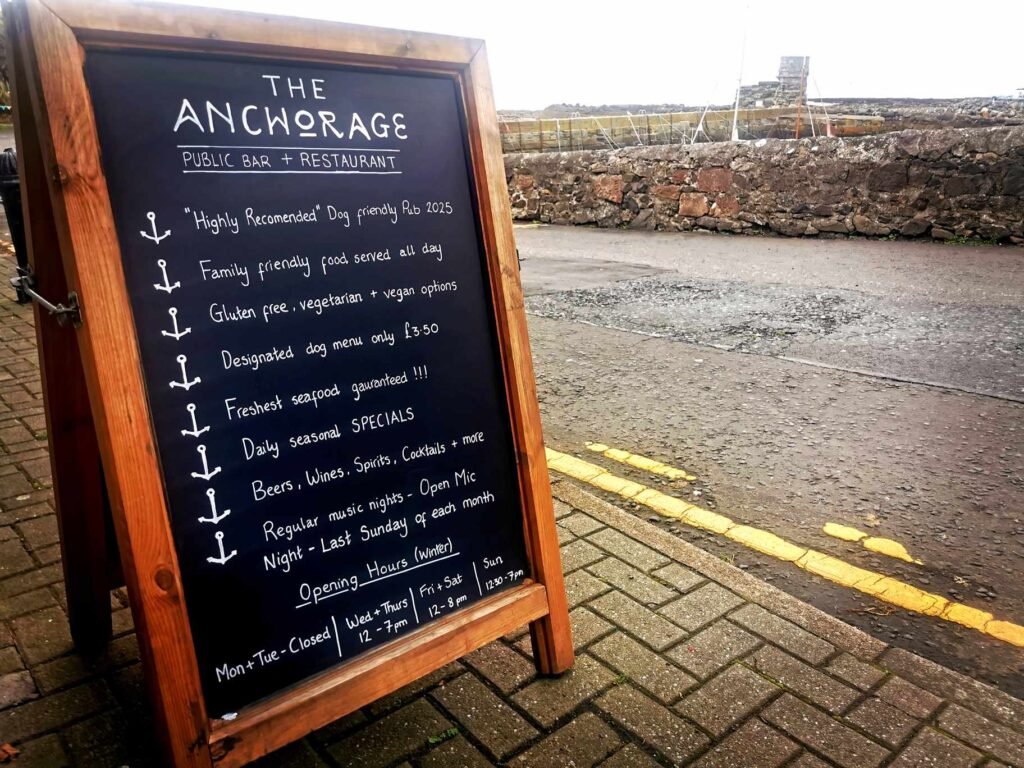 THE
ANCHORAGE
PUBLIC BAR + RESTAURANT
"Highly Recomended" Dog friendly Pub 2025
Family friendly food served all day
Gluten free, vegetarian + vegan options
Designated dog menu only £3.50
Freshest seafood gauranteed !!!
Daily seasonal SPECIALS
Beers, Wines, Spirits, Cocktails + more
Regular music nights - Open Mic
Night - Last Sunday of each month
Opening Hours (Winter)
Mon + Tue - Closed | Wed + Thurs | Fri + Sat | Sun
12 - 7pm 12 - 8pm 12:30 - 7pm